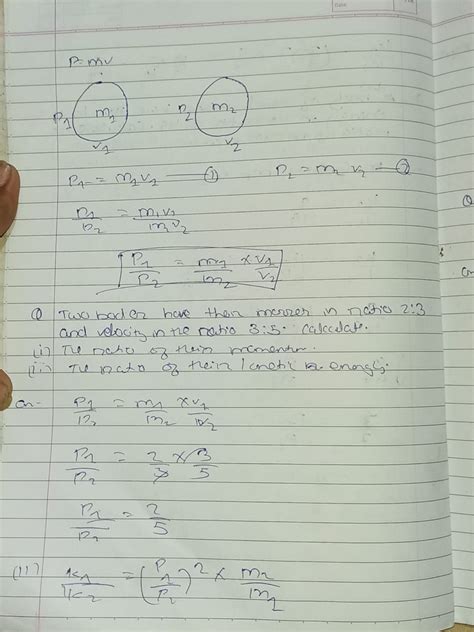 P = mv
P1 m1 v1 P2 m2 v2
P1 = m1 v1 — ① P2 = m2 v2 — ②
P1/P2 = m1v1/m2v2
P1/P2 = m1/m2 × v1/v2
Q Two bodies have their masses in ratio 2:3
and velocity in the ratio 3:5. calculate.
(i) The ratio of their momentum.
(ii) The ratio of their kinetic energy.
P1/P2 = m1/m2 × v1/v2
P1/P2 = 2/3 × 3/5
P1/P2 = 2/5
(ii) K1/K2 = (P1/P2)2 × m2/m1